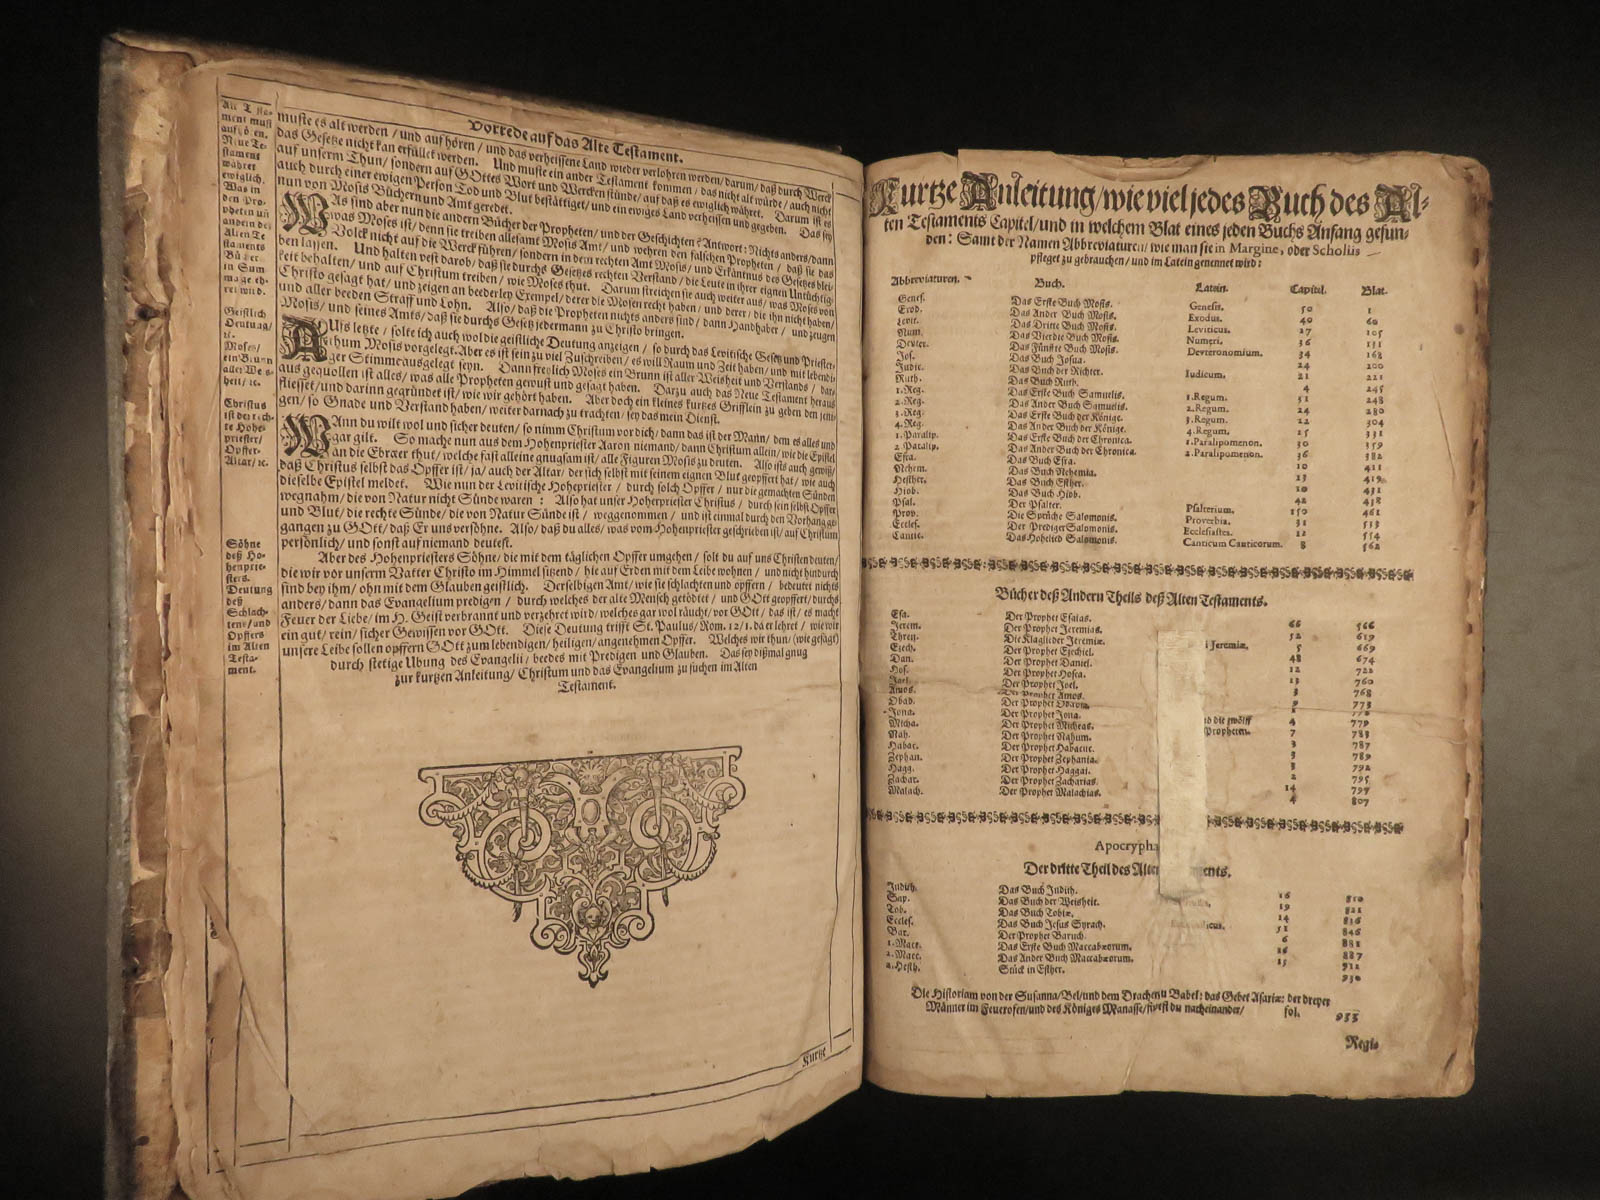 Vorrede auf das Alte Testament.
Alt Testa-
ment muß
aufhören.
Neue Te-
stament
währet
ewiglich.
Was in
den Pro-
pheten uñ
andern des
Alten Te-
staments
Bücher
in Sum
Geistlich
Deutung/
Mosen/
ein Brunn
aller Weis-
heit/ ꝛc.
Christus
ist der rech-
te Hohe-
priester/
Opffer-
Altar/ ꝛc.
Söhne
deß Ho-
henprie-
sters.
Deutung
deß
Schlach-
tens/ und
Opffers
im Alten
Testa-
ment.
muste es alt werden / und auf hören / und das verheissene Land wieder verlohren werden / darum / daß durch Werck
das Gesetze nicht kan erfüllet werden. Und muste ein ander Testament kommen / das nicht alt würde / auch nicht
auf unserm Thun / sondern auf GOttes Wort und Wercken stünde / auf daß es ewiglich währet. Darum ist es
auch durch einer ewigen Person Tod und Blut bestättiget / und ein ewiges Land verheissen und gegeben. Das sey
nun von Mosis Büchern und Amt geredet.
WAs sind aber nun die andern Bücher der Propheten / und der Geschichten? Antwort: Nichts anders / dann
was Moses ist / denn sie treiben allesamt Mosis Amt / und wehren den falschen Propheten / daß sie das
Volck nicht auf die Werck führen / sondern in dem rechten Amt Mosis / und Erkäntnus des Gesetzes blei-
ben lassen. Und halten vest darob / daß sie durchs Gesetzes rechten Verstand / die Leute in ihrer eignen Untüchtig-
keit behalten / und auf Christum treiben / wie Moses thut. Darum streichen sie auch weiter aus / was Moses von
Christo gesagt hat / und zeigen an beederley Exempel / derer die Mosen recht haben / und derer / die ihn nicht haben /
und aller beeden Straff und Lohn. Also / daß die Propheten nichts anders sind / dann Handhaber / und zeugen
Mosis / und seines Amts / daß sie durchs Gesetz jedermann zu Christo bringen.
AUfs letzte / solte ich auch wol die geistliche Deutung anzeigen / so durch das Levitische Gesetz und Priester-
thum Mosis vorgelegt. Aber es ist sein zu viel Zuschreiben / es will Raum und Zeit haben / und mit lebendi-
ger Stimme ausgelegt seyn. Dann freylich Moses ein Brunn ist aller Weisheit und Verstands / dar-
aus gequollen ist alles / was alle Propheten gewust und gesagt haben. Darzu auch das Neue Testament heraus
fliesset / und darinn gegründet ist / wie wir gehört haben. Aber doch ein kleines kurtzes Grifflein zu geben den jeni-
gen / so Gnade und Verstand haben / weiter darnach zu trachten / sey das mein Dienst.
WAnn du wilt wol und sicher deuten / so nimm Christum vor dich / dann das ist der Mann / dem es alles und
gar gilt. So mache nun aus dem Hohenpriester Aaron niemand / dann Christum allein / wie die Epistel
an die Ebræer thut / welche fast alleine gnugsam ist / alle Figuren Mosis zu deuten. Also ists auch gewiß /
daß Christus selbst das Opffer ist / ja / auch der Altar / der sich selbst mit seinem eignen Blut geopffert hat / wie auch
dieselbe Epistel meldet. Wie nun der Levitische Hohepriester / durch solch Opffer / nur die gemachten Sünden
wegnahm / die von Natur nicht Sünde waren : Also hat unser Hoherpriester Christus / durch sein selbst Opffer
und Blut / die rechte Sünde / die von Natur Sünde ist / weggenommen / und ist einmal durch den Vorhang ge-
gangen zu GOtt / daß Er uns versöhne. Also / daß du alles / was vom Hohenpriester geschrieben ist / auf Christum
persönlich / und sonst auf niemand deutest.
Aber des Hohenpriesters Söhne / die mit dem täglichen Opffer umgehen / solt du auf uns Christen deuten /
die wir vor unserm Vatter Christo im Himmel sitzend / hie auf Erden mit dem Leibe wohnen / und nicht hindurch
sind bey ihm / ohn mit dem Glauben geistlich. Derselbigen Amt / wie sie schlachten und opffern / bedeutet nichts
anders / dann das Evangelium predigen / durch welches der alte Mensch getödtet / und GOtt geopffert / durchs
Feuer der Liebe / im H. Geist verbrannt und verzehret wird / welches gar wol räucht / vor GOtt / das ist / es macht
ein gut / rein / sicher Gewissen vor GOtt. Diese Deutung trifft St. Paulus / Rom. 12 / 1. da er lehret / wie wir
unsere Leibe sollen opffern GOtt zum lebendigen / heiligen / angenehmen Opffer. Welches wir thun / (wie gesagt)
durch stetige Ubung des Evangelii / beedes mit Predigen und Glauben. Das sey dißmal gnug
zur kurtzen Anleitung / Christum und das Evangelium zu suchen im Alten
Testament.
Kurtze
Kurtze Anleitung / wie viel jedes Buch des Al-
ten Testaments Capitel / und in welchem Blat eines jeden Buchs Anfang gefun-
den: Samt der Namen Abbreviaturen / wie man sie in Margine, oder Scholiis
pfleget zu gebrauchen / und im Latein genennet wird:
Abbreviaturen. Buch. Latein. Capitel. Blat.
Genes. Das Erste Buch Mosis. Genesis. 50 1
Exod. Das Ander Buch Mosis. Exodus. 40 60
Levit. Das Dritte Buch Mosis. Leviticus. 27 105
Num. Das Vierdte Buch Mosis. Numeri. 36 131
Deuter. Das Fünffte Buch Mosis. Devteronomium. 34 168
Jos. Das Buch Josua. 24 200
Judic. Das Buch der Richter. Iudicum. 21 221
Ruth. Das Buch Ruth. 4 245
1. Reg. Das Erste Buch Samuelis. 1. Regum. 31 248
2. Reg. Das Ander Buch Samuelis. 2. Regum. 24 280
3. Reg. Das Erste Buch der Könige. 3. Regum. 22 304
4. Reg. Das Ander Buch der Könige. 4. Regum. 25 331
1. Paralip. Das Erste Buch der Chronica. 1. Paralipomenon. 30 359
2. Paralip. Das Ander Buch der Chronica. 2. Paralipomenon. 36 382
Esra. Das Buch Esra. 10 411
Nehem. Das Buch Nehemia. 13 419
Hesther. Das Buch Esther. 10 431
Hiob. Das Buch Hiob. 42 438
Psal. Der Psalter. Psalterium. 150 461
Prov. Die Sprüche Salomonis. Proverbia. 31 513
Eccles. Der Prediger Salomonis. Ecclesiastes. 12 554
Cantic. Das Hohelied Salomonis. Canticum Canticorum. 8 562
Bücher deß Andern Theils deß Alten Testaments.
Esa. Der Prophet Esaias. 66 566
Jerem. Der Prophet Jeremias. 52 619
Thren. Die Klaglieder Jeremiæ. i Jeremiæ, 5 669
Ezech. Der Prophet Ezechiel. 48 674
Dan. Der Prophet Daniel. 12 722
Hos. Der Prophet Hosea. 13 760
Joel. Der Prophet Joel. 3 768
Amos. Der Prophet Amos. 9 773
Obad. Der Prophet Obadja.
Jona. Der Prophet Jona. 4 779
Micha. Der Prophet Micheas. nd die zwölff 7 783
Nah. Der Prophet Nahum. Propheten. 3 787
Habac. Der Prophet Habacuc. 3 789
Zephan. Der Prophet Zephania. 3 792
Hagg. Der Prophet Haggai. 2 795
Zachar. Der Prophet Zacharias. 14 797
Malach. Der Prophet Malachias. 4 807
Apocrypha
Der dritte Theil des Alten ments.
Judith. Das Buch Judith. 16 810
Sap. Das Buch der Weisheit. 19 821
Tob. Das Buch Tobiæ. 14 836
Eccles. Das Buch Jesus Syrach. 51 846
Bar. Der Prophet Baruch. 6 881
1. Macc. Das Erste Buch Maccabæorum. 16 887
2. Macc. Das Ander Buch Maccabæorum. 15 912
2. Hesth. Stück in Esther. 930
Die Historiam von der Susanna / Bel / und dem Drachen u Babel: das Gebet Asariæ: der dreyer
Männer im Feuerofen / und des Königes Manasse / findest du nacheinander / fol. 933
Regi-